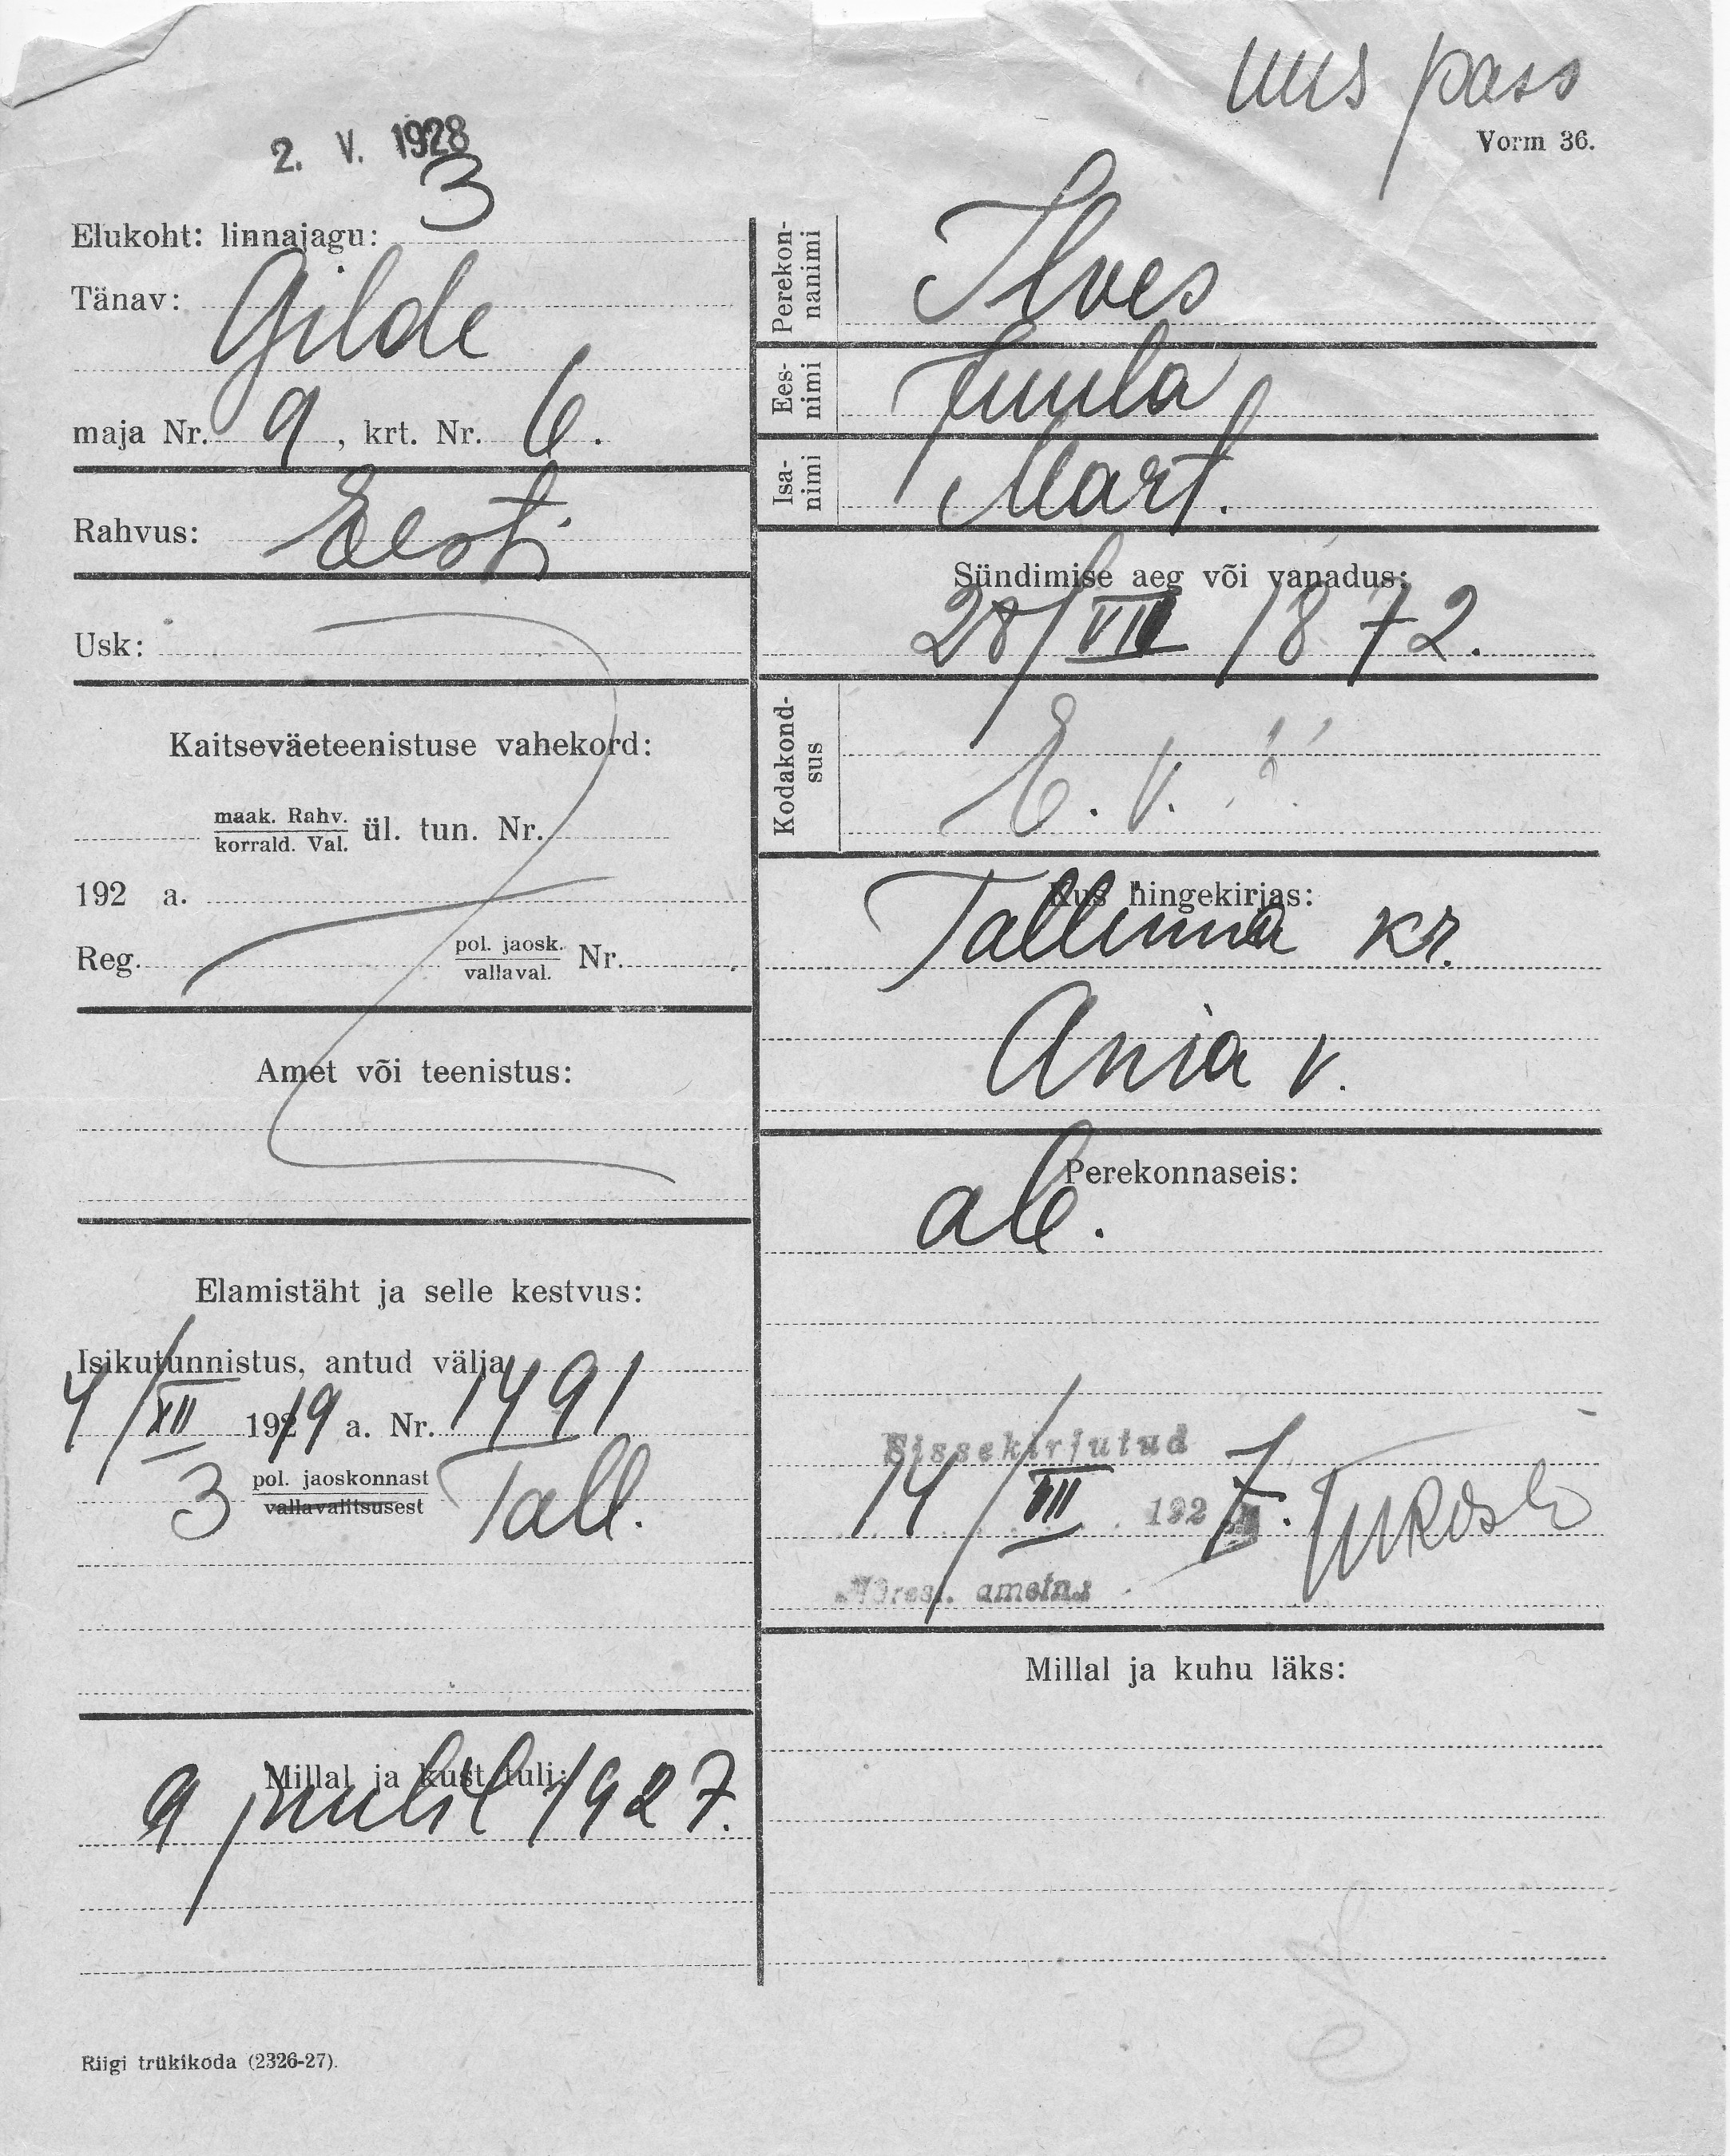 uus pass
Vorm 36.
2. V. 1928
Elukoht: linnajagu: 3
Tänav: Gilde
maja Nr. 9, krt. Nr. 6.
Rahvus: Eesti
Usk:
Kaitseväeteenistuse vahekord:
maak. Rahv.
korrald. Val. ül. tun. Nr.
192 a.
Reg. pol. jaosk. Nr.
vallaval.
Amet või teenistus:
Elamistäht ja selle kestvus:
Isikutunnistus, antud välja
4/XII 1919 a. Nr. 1491
3 pol. jaoskonnast Tall.
vallavalitsusest
Millal ja kust tuli:
9 juulil 1927.
Riigi trükikoda (2326-27).
Perekon-
nanimi
Ilves
Ees-
nimi
Juula
Isa-
nimi
Mart.
Sündimise aeg või vanadus:
28/VII 1872.
Kodakond-
sus
E. V.
Kus hingekirjas:
Tallinna kr.
Ania v.
Perekonnaseis:
ab.
Sissekirjutud
14/VII 1927.
ametn.
Millal ja kuhu läks: